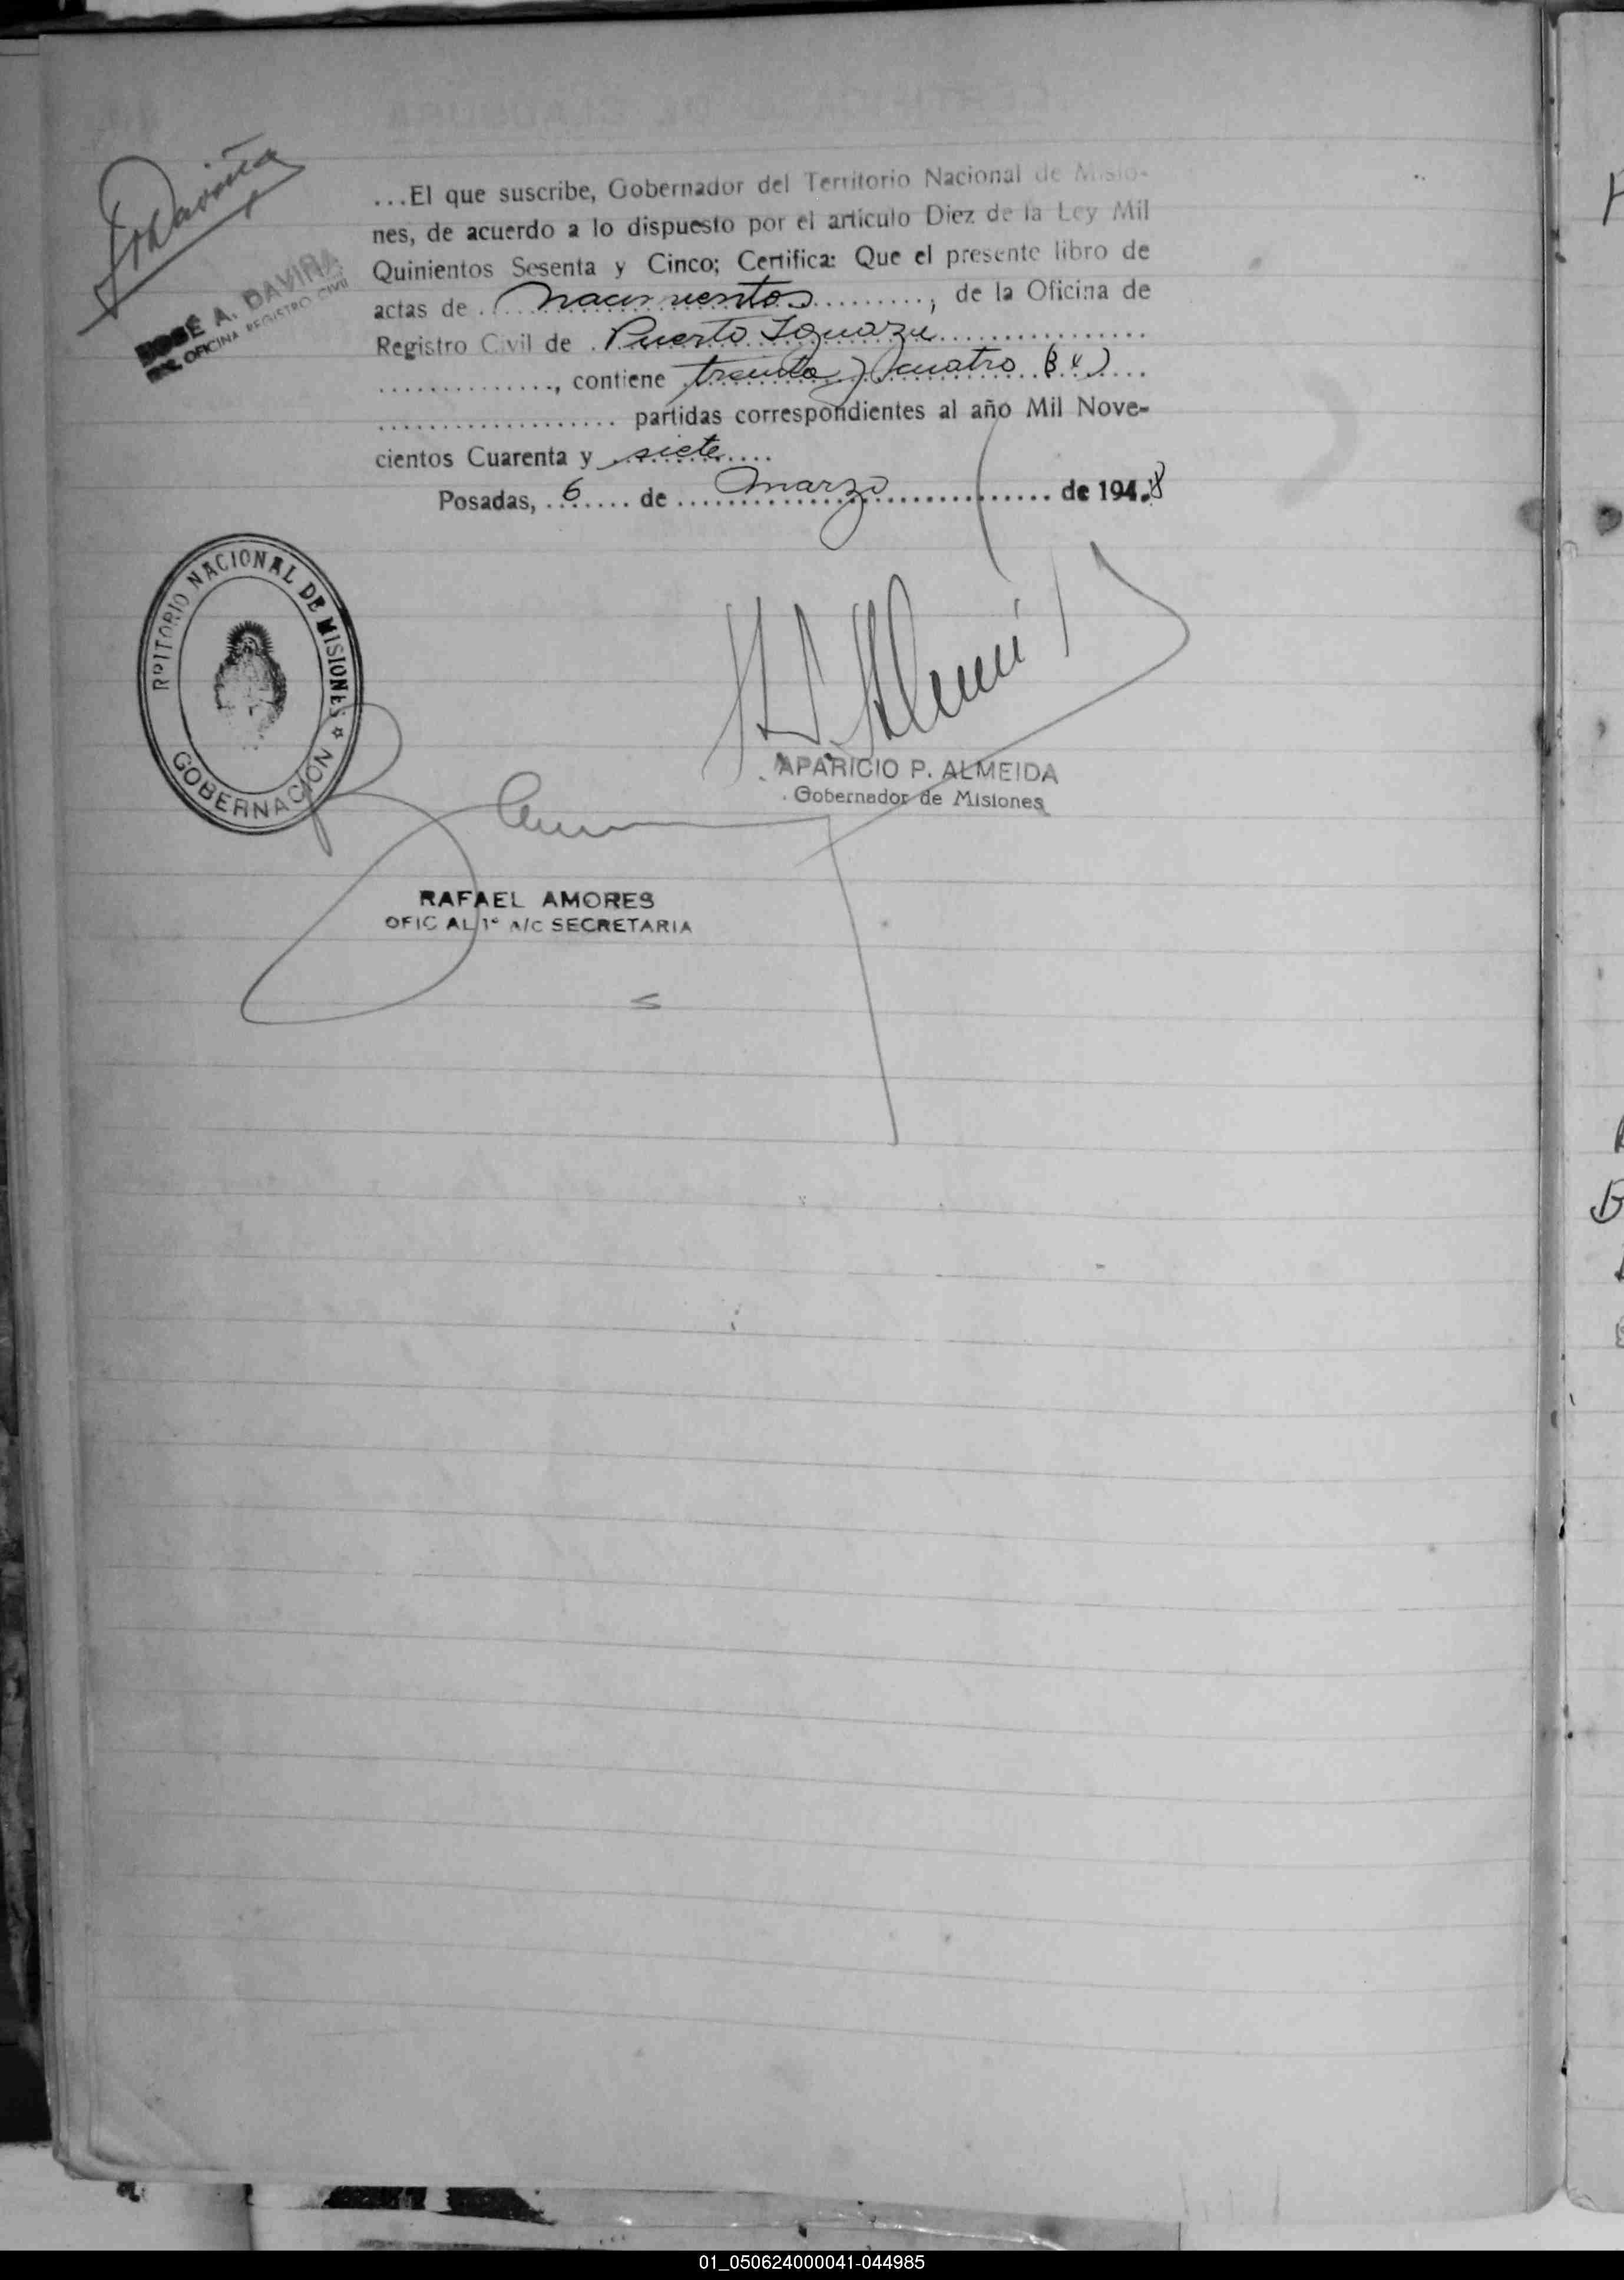 JOSÉ A. DAVIÑA
OFICINA REGISTRO CIVIL
...El que suscribe, Gobernador del Territorio Nacional de Misio-
nes, de acuerdo a lo dispuesto por el artículo Diez de la Ley Mil
Quinientos Sesenta y Cinco; Certifica: Que el presente libro de
actas de nacimientos, de la Oficina de
Registro Civil de Puerto Iguazú
, contiene treinta y cuatro (34)
partidas correspondientes al año Mil Nove-
cientos Cuarenta y siete
Posadas, 6 de marzo de 1948
RRITORIO NACIONAL DE MISIONES
GOBERNACIÓN
APARICIO P. ALMEIDA
Gobernador de Misiones
RAFAEL AMORES
OFIC AL 1º A/C SECRETARIA
01_050624000041-044985